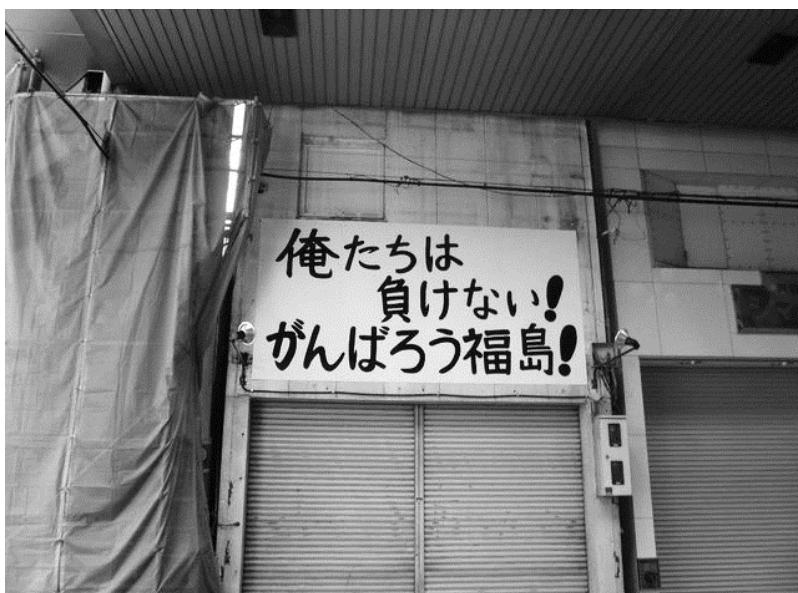 俺たちは
負けない!
がんばろう福島!